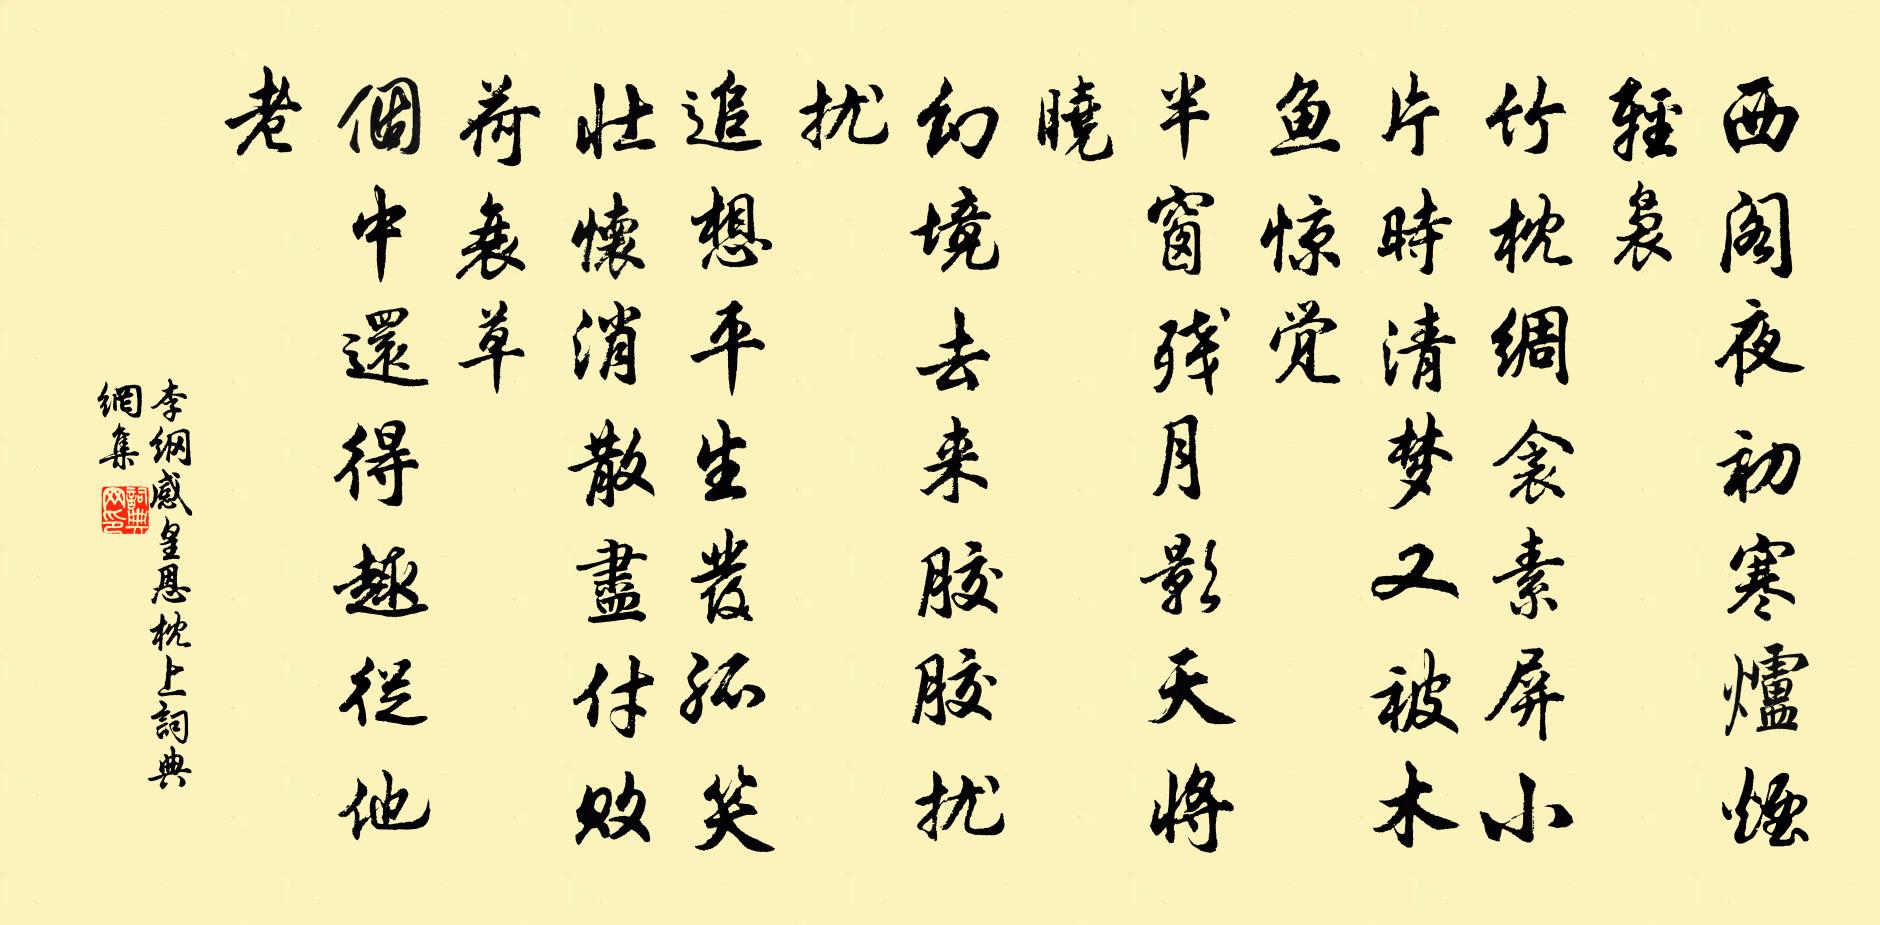 西阁夜初寒爐煙
輕裊
竹枕綢衾素屏小
片時清梦又被木
鱼惊觉
半窗残月影天将
曉
幻境去来胶胶扰
扰
追想平生發孤笑
壯懷消散盡付败
荷衰草
個中還得趣從他
老
李纲感皇恩枕上詞典
網集
詞典网印